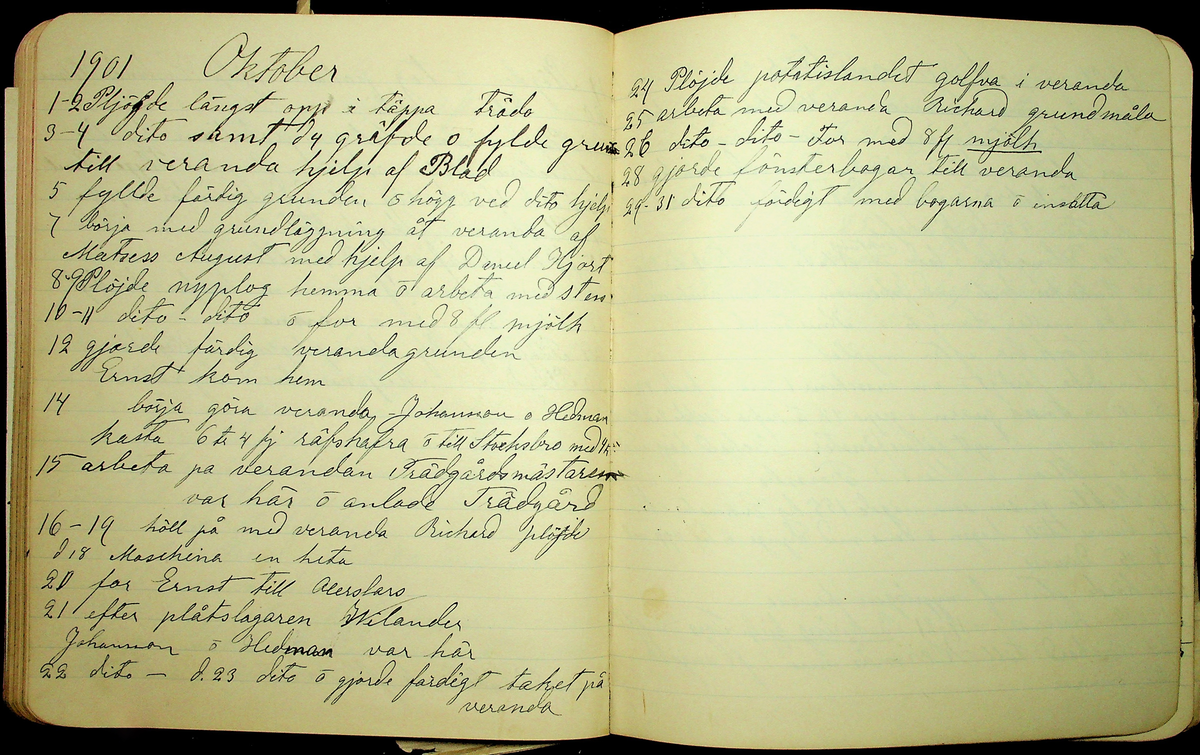 1901 Oktober
1-2 Plöjde längst opp i täppa Träda
3-4 dito samt d4 gräfde o fylde grun
till veranda hjelp af Blad
5 fyllde färdig grunden ö högg ved dito hjelp
7 börja med grundläggning åt veranda af
Matsess August med hjelp af Daniel Hjort
8-9 Plöjde nyplog hemma ö arbeta med sten
10-11 dito - dito ö for med 8 fl mjölk
12 gjorde färdig verandagrunden
Ernst kom hem
14 börja göra veranda - Johansson o Hedman
kasta 6 tr 4 fj räfshafra ö till Stocksbro med
15 arbeta pa verandan Trädgårdsmästaren
var här ö anlade Trädgård
16-19 höll på med veranda Richard plöjde
d 18 Maschina en heta
20 for Ernst till
21 efter plåtslagaren Welander
Johansson ö Hedman var här
22 dito - d. 23 dito ö gjorde färdigt taket på
veranda
24 Plöjde potatislandet golfva i veranda
25 arbeta med veranda Richard grundmåla
26 dito - dito - For med 8 fl mjölk
28 gjorde fönsterbogar till veranda
29-31 dito färdigt med bogarna ö insätta